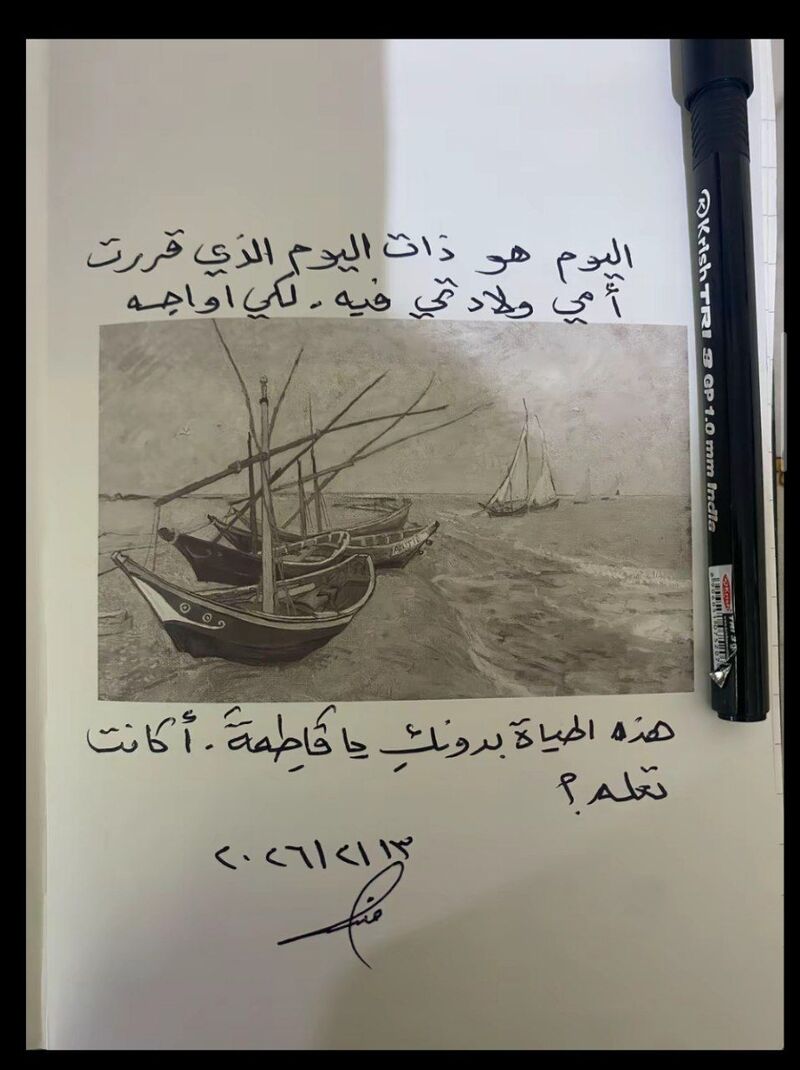 اليوم هو ذات اليوم الذي قررت
أمي ولادتي فيه. لكي اواجه
هذه الحياة بدونكِ يا فَاطِمةَ. أكانت
تعلم؟
٢٠٢٦/٢/١٣
Krish TRI 3 GP 1.0 mm India